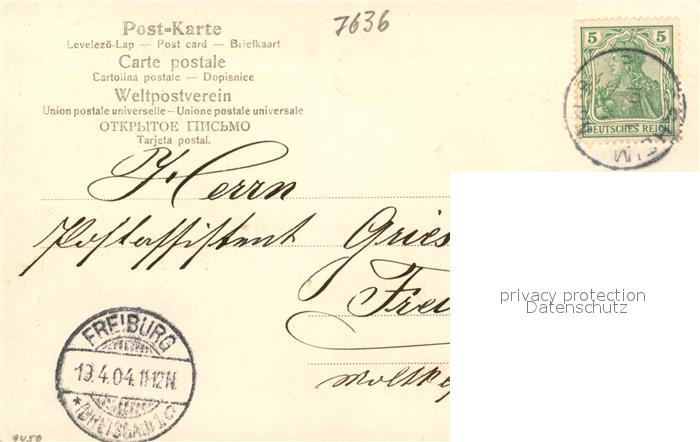 7636
Post-Karte
Levelező-Lap — Post card — Briefkaart
Carte postale
Cartolina postale — Dopisnice
Weltpostverein
Union postale universelle - Unione postale universale
ОТКРЫТОЕ ПИСЬМО
Tarjeta postal.
5 5
DEUTSCHES REICH
Herrn
Postassistent Gries
Frei
Moltke
privacy protection
Datenschutz
FREIBURG
19.4.04.11-12N.
*(BREISGAU)1.
9450